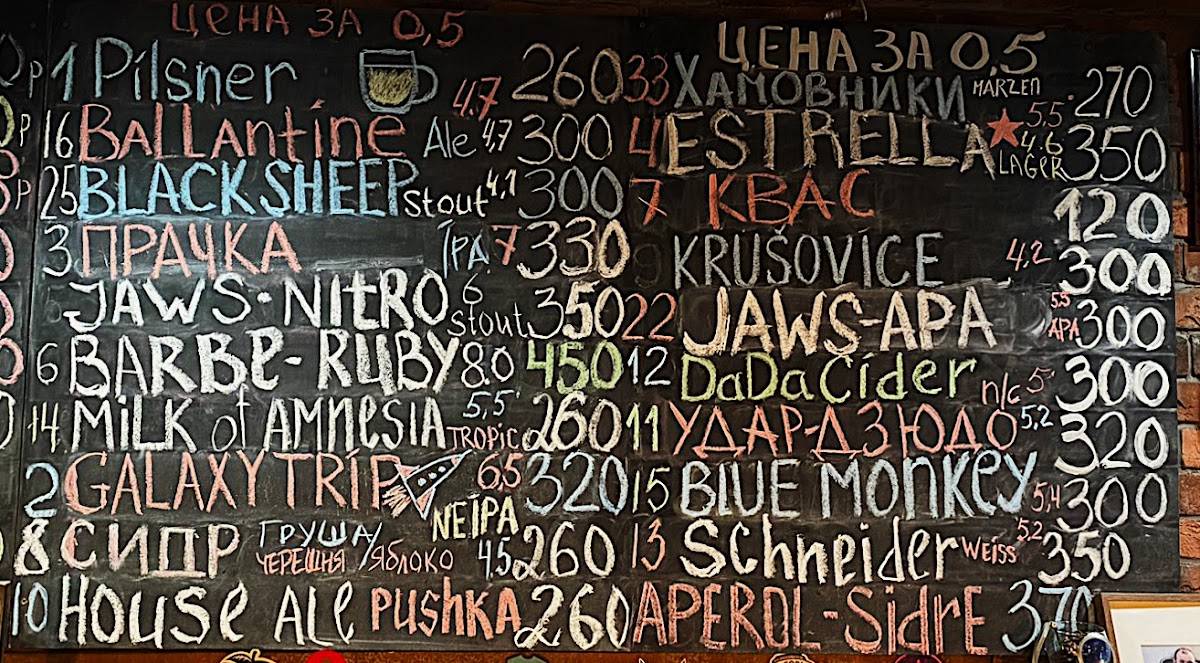 ЦЕНА ЗА 0,5
1 Pilsner 4.7 260
16 BALLANtiNE Ale 4,7 300
25 BLACK SHEEP Stout 4,1 300
3 ПРАЧКА IPA 7 330
JAWS·NitRO 6 Stout 350
6 BARBE-RUBY 8.0 450
14 MiLK of AMNesiA 5,5 TROPIC 260
2 GALAXY TRIP 6,5 NEIPA 320
8 СИДР ГРУША/ ЧЕРЕШНЯ /ЯБЛОКО 4.5 260
10 HOUSe ALe PUSHKA 260
ЦЕНА ЗА 0,5
33 ХАМОВНИКИ MÄRZEN 5.5 270
4 ESTRELLA 4.6 LAGER 350
7 КВАС 120
9 KRUŠOVICE 4,2 300
22 JAWS-APA 5.5 APA 300
12 DaDa Cider п/с 5 300
11 УДАР-ДЗЮДО 5,2 320
15 BLUE MONKey 5,4 300
13 Schneider Weiss 5.2 350
APEROL-SidRE 370